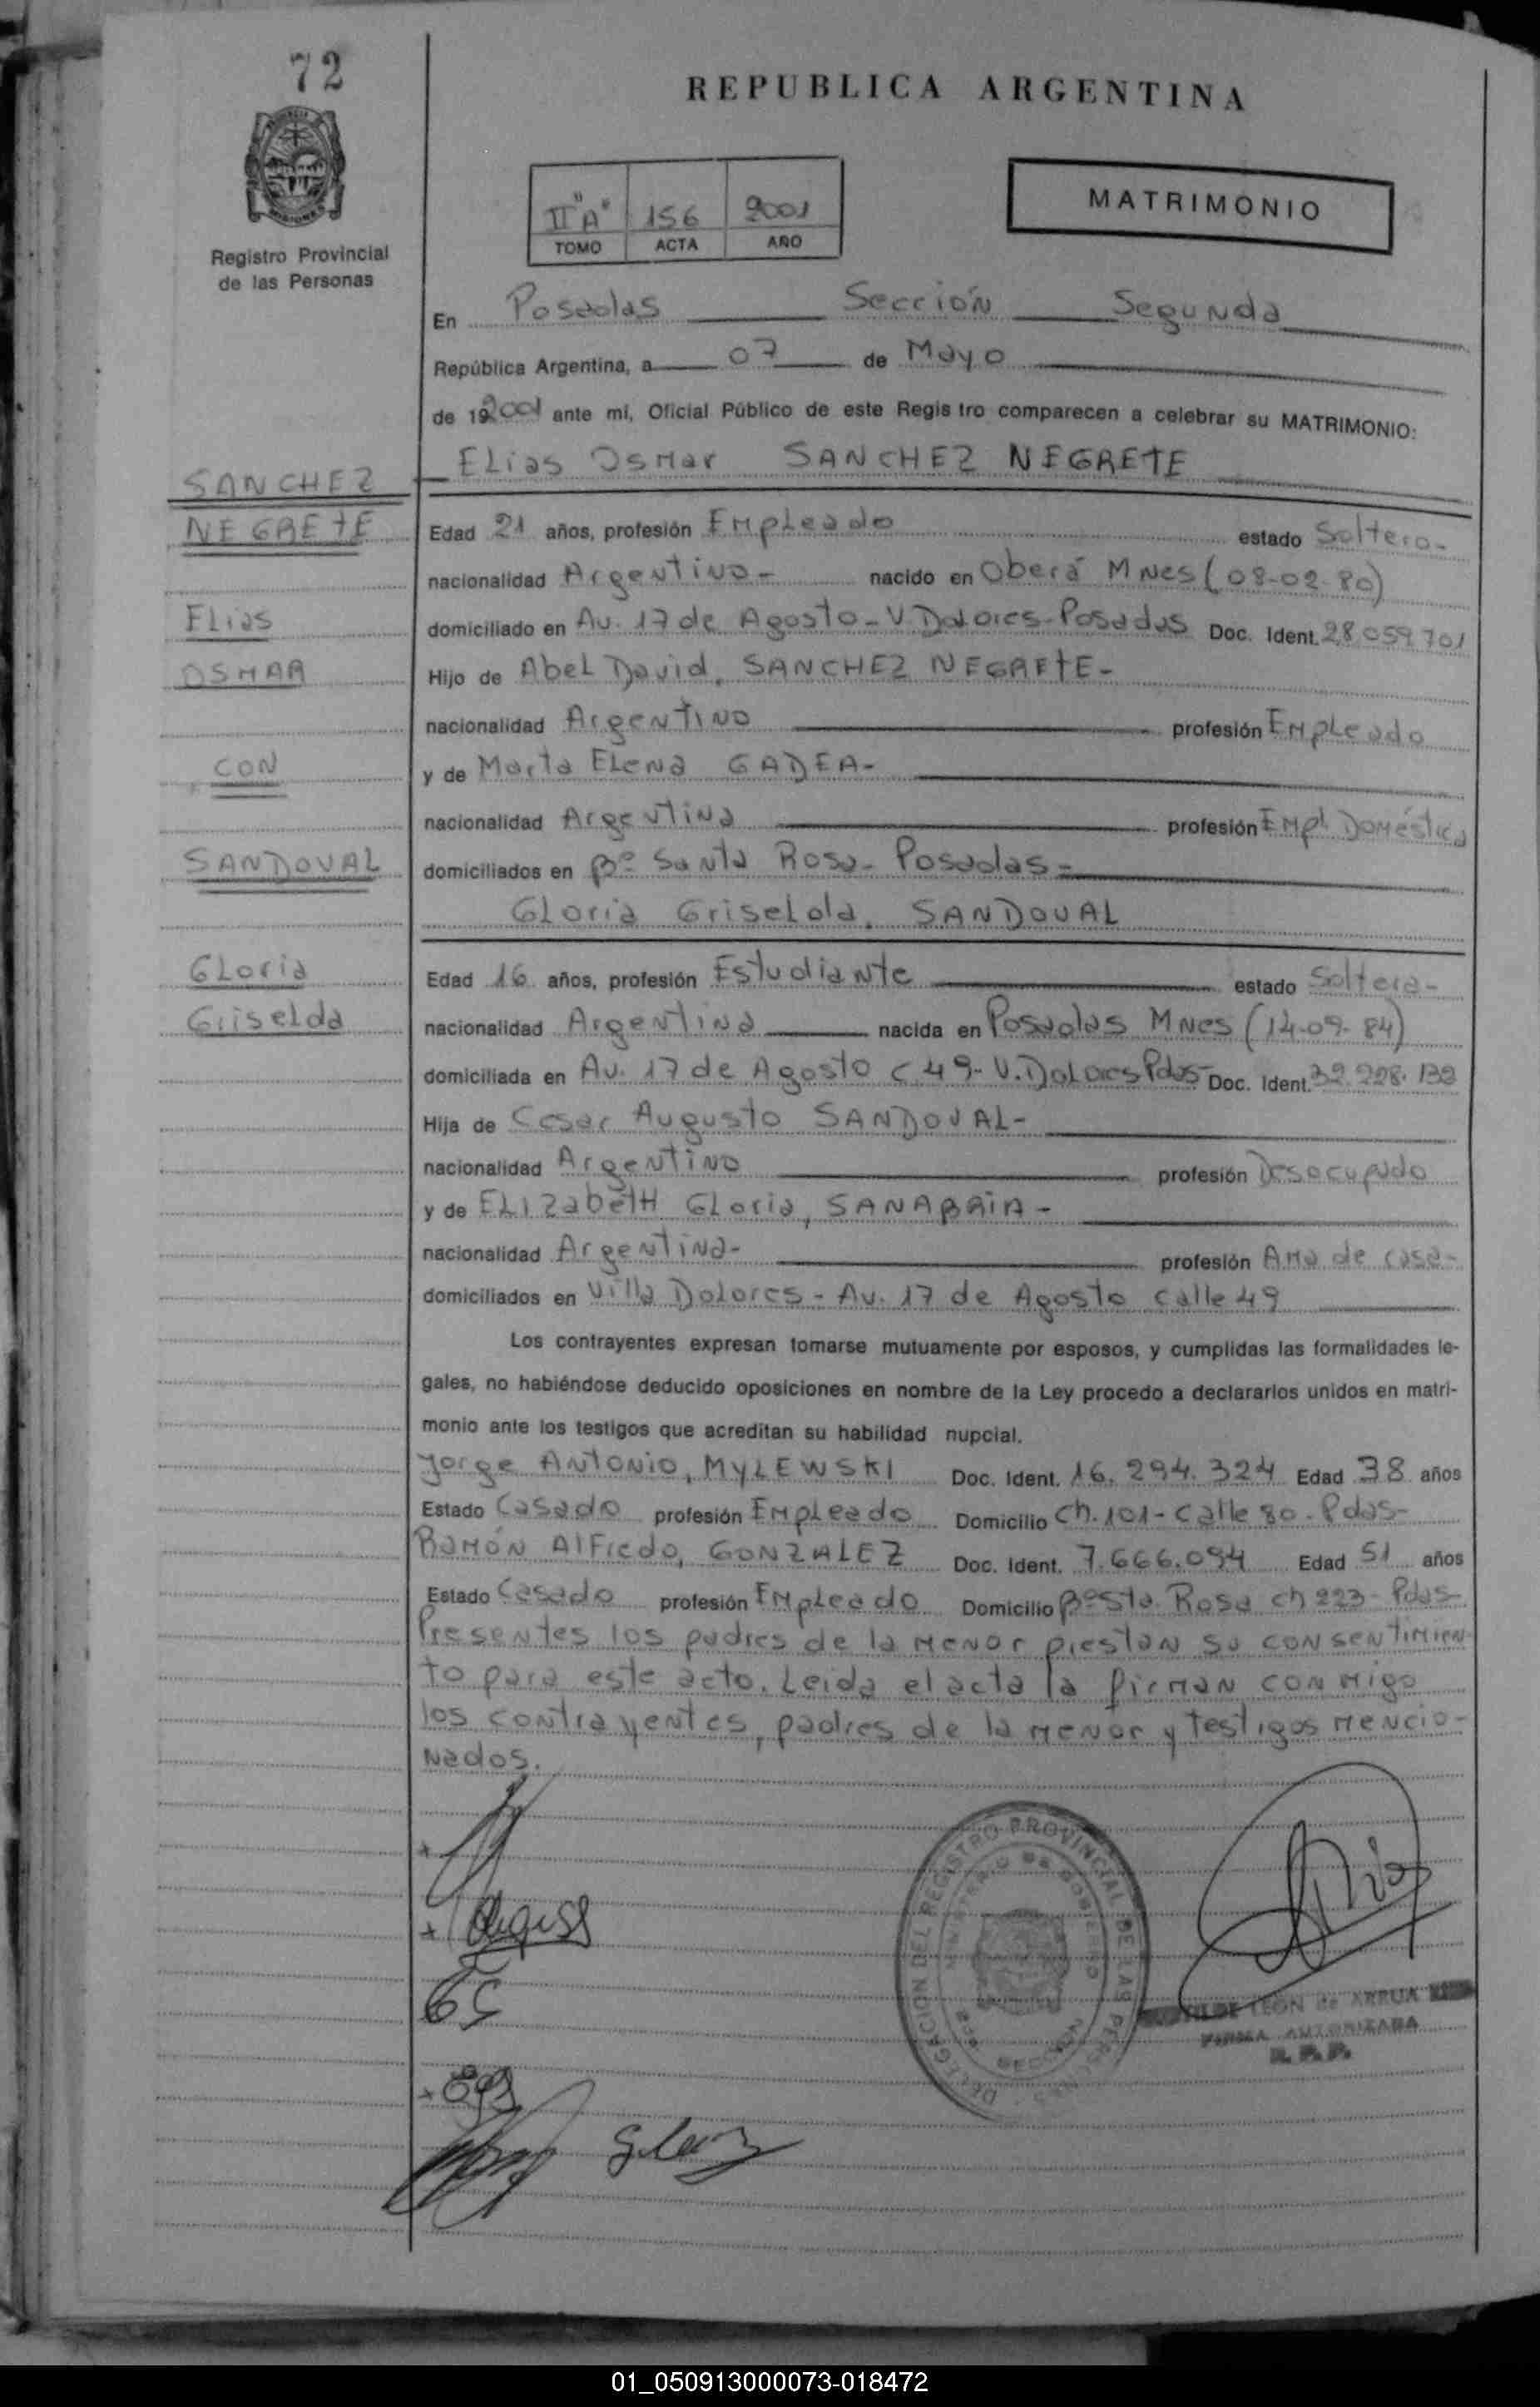 72
REPUBLICA ARGENTINA
MISIONES
Registro Provincial
de las Personas
II "A" 156 2001
TOMO ACTA AÑO
MATRIMONIO
En Posadas Sección Segunda
República Argentina, a 07 de Mayo
de 192001 ante mí, Oficial Público de este Regis tro comparecen a celebrar su MATRIMONIO:
Elias Osmar SANCHEZ NEGRETE
SANCHEZ
NEGRETE
Elias
OSMAR
CON
SANDOVAL
Gloria
Griselda
Edad 21 años, profesión Empleado estado Soltero-
nacionalidad Argentino- nacido en Oberá Mnes (08-02-80)
domiciliado en Av. 17 de Agosto - V. Dolores - Posadas Doc. Ident. 28.059.701
Hijo de Abel David, SANCHEZ NEGRETE-
nacionalidad Argentino profesión Empleado
y de Marta Elena GADEA-
nacionalidad Argentina profesión Empl. Doméstica
domiciliados en Bº Santa Rosa - Posadas-
Gloria Griselda, SANDOVAL
Edad 16 años, profesión Estudiante estado Soltera-
nacionalidad Argentina nacida en Posadas Mnes (14-09-84)
domiciliada en Av. 17 de Agosto C. 49- V. Dolores Pdas- Doc. Ident. 32.228.132
Hija de Cesar Augusto SANDOVAL-
nacionalidad Argentino profesión Desocupado
y de Elizabeth Gloria, SANABRIA-
nacionalidad Argentina- profesión Ama de casa-
domiciliados en Villa Dolores - Av. 17 de Agosto calle 49
Los contrayentes expresan tomarse mutuamente por esposos, y cumplidas las formalidades le-
gales, no habiéndose deducido oposiciones en nombre de la Ley procedo a declararlos unidos en matri-
monio ante los testigos que acreditan su habilidad nupcial.
Jorge Antonio, MYLEWSKI Doc. Ident. 16.294.324 Edad 38 años
Estado Casado profesión Empleado Domicilio Ch. 101- Calle 80 - Pdas-
Ramón Alfredo, GONZALEZ Doc. Ident. 7.666.094 Edad 51 años
Estado Casado profesión Empleado Domicilio Bº Sta Rosa ch 223 - Pdas-
Presentes los padres de la menor prestan su consentimien
to para este acto. Leida el acta la firman conmigo
los contrayentes, padres de la menor y testigos mencio-
nados.
DELEGACION DEL REGISTRO PROVINCIAL DE LAS PERSONAS
MINISTERIO DE GOBIERNO
LEON de ARRUA
FIRMA AUTORIZADA
R. P. P.
01_050913000073-018472